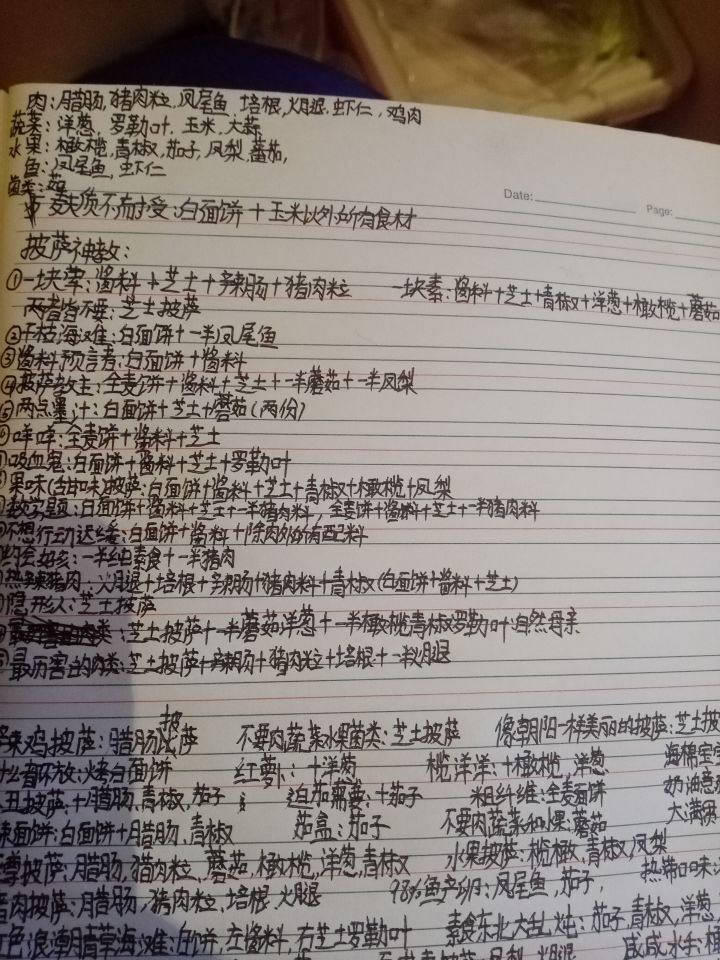 肉:腊肠,猪肉粒,凤尾鱼,培根,火腿,虾仁,鸡肉
蔬菜:洋葱,罗勒叶,玉米,大蒜
水果:橄榄,青椒,茄子,凤梨,蕃茄,
鱼:凤尾鱼,虾仁
菌类:菇
Date: Page:
麦夫质不耐受:白面饼+玉米以外所有食材
披萨神教:
①一块荤:酱料+芝士+辣肠+猪肉粒 一块素:酱料+芝士+青椒+洋葱+橄榄+蘑菇
两者皆不要:芝士披萨
②干枯海滩:白面饼+一半凤尾鱼
③酱料预言者:白面饼+酱料
④披萨教主:全麦饼+酱料+芝士+一半蘑菇+一半凤梨
⑤两点墨汁:白面饼+芝士+蘑菇(两份)
咩咩:全麦饼+酱料+芝士
吸血鬼:白面饼+酱料+芝士+罗勒叶
果味(甜味)披萨:白面饼+酱料+芝士+青椒+橄榄+凤梨
数学题:白面饼+酱料+芝士+一半猪肉料,全麦饼+酱料+芝士+一半猪肉料
不想行动迟缓:白面饼+酱料+除肉外所有配料
约会好孩:一半纯素食+一半猪肉
热辣猪肉:火腿+培根+辣肠+猪肉料+青椒(白面饼+酱料+芝士)
隐形人:芝士披萨
类:芝士披萨+一半蘑菇洋葱+一半橄榄青椒罗勒叶:自然母亲
最厉害的肉类:芝士披萨+辣肠+猪肉粒+培根+一半火腿
鸡披萨:腊肠披萨 不要肉蔬菜水果菌类:芝士披萨 像朝阳一样美丽的披萨:芝士披
什么都不放:烤白面饼 红萝卜:+洋葱 榄洋洋:+橄榄,洋葱 海绵宝宝
丑披萨:+腊肠,青椒,茄子 迫加需要:+茄子 粗纤维:全麦面饼 奶油意
辣面饼:白面饼+腊肠,青椒 茄盒:茄子 不要肉蔬菜和水果:蘑菇 大满贯
尊披萨:腊肠,猪肉粒,蘑菇,橄榄,洋葱,青椒 水果披萨:橄榄,青椒,凤梨 热带口味
肉披萨:腊肠,猪肉粒,培根,火腿 98%鱼产卵:凤尾鱼,茄子,
色浪潮青草海滩:白饼,左酱料,右芝士罗勒叶 素食东北大乱炖:茄子,青椒,洋葱,
凤梨,火腿 咸咸水手:橄